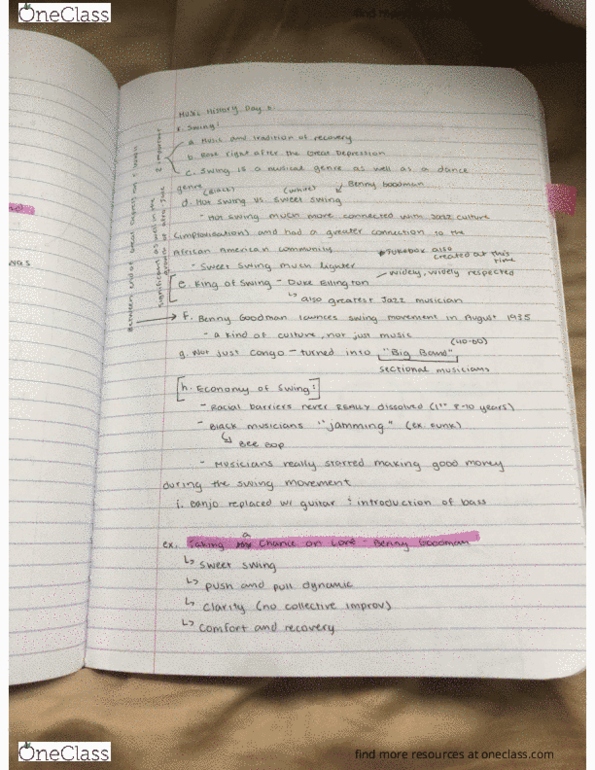 OneClass
find more resources at oneclass.com
Music History Day 2.
I. Swing!
a. Music and tradition of recovery
b. Rose right after the Great Depression
c. Swing is a musical genre as well as a dance
genre (Black) (white) Benny Goodman
d. Hot swing vs. sweet swing
- Hot swing much more connected with Jazz culture
(improvisations) and had a greater connection to the
African American community
* Jukebox also
created at this
time
- Sweet Swing much lighter
- widely, widely respected
e. King of Swing - Duke Ellington
↳ also greatest Jazz musician
f. Benny Goodman launces swing movement in August 1935
- a kind of culture, not just music
(40-60)
g. Not just Congo - turned into "Big Band"
sectional musicians
h. Economy of Swing:
- Racial barriers never REALLY dissolved (1st 8-10 years)
- Black musicians "jamming" (ex. Funk)
↳ Bee Bop
- Musicians really started making good money
during the swing movement
i. Banjo replaced w/ guitar : introduction of bass
a
ex. Taking Chance on Love - Benny Goodman
↳ Sweet swing
↳ push and pull dynamic
↳ Clarity (no collective improv)
↳ Comfort and recovery
Between end of Great Depress on
significant as well in the
growth of Afro
2 important
was
OneClass
find more resources at oneclass.com